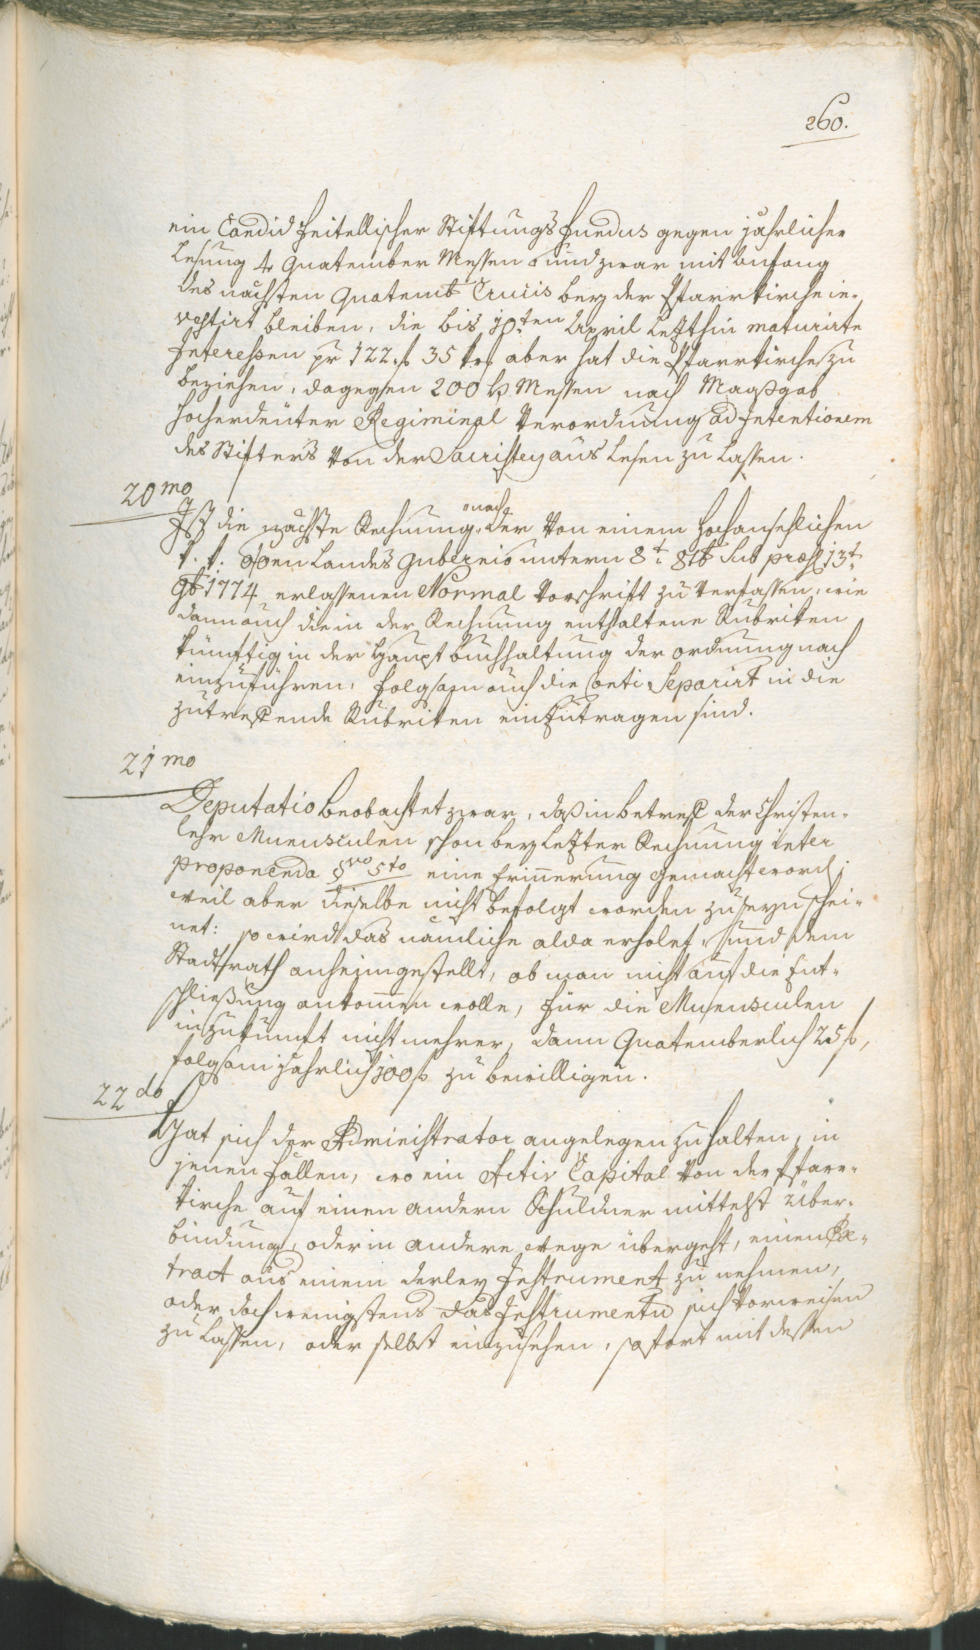 260.
ein Candid Zeitellischer Stiftungs Fundus gegen jährlicher
Lesung 4 Quatember Messen und zwar mit anfang
des nächsten Quatemb Crucis bey der Pfarrkirche in-
vestirt bleiben, die bis 10ten April letzthin maturirte
Interessen pr 122 f 35 kr aber hat die Pfarrkirche zu
beziehen, dagegen 200 hl Messen nach Maaßgab
hocherdeüter Regiminal Verordnung ad Intentionem
des Stifters von der Sacristey aus lesen zu lassen.
20mo
Ist die nächste Rechnung nach der von einem hochansehlichen
k. k: Oö:en Landes Gubernio untern 8t 8tb sub præs 13t
9b 1774 erlassenen Normal Vorschrift zu verfassen, wie
dann auch die in der Rechnung enthaltene Rubriken
künftig in der Haupt Buchhaltung der ordnung nach
einzuführen, folgsam auch die Conti separirt in die
zutreffende Rubriken einzutragen sind.
21mo
Deputatio beobachtet zwar, daß in betreff der Christen-
lehr Munusculen schon bey letzter Rechnung inter
proponenda §vo 5to eine Erinnerung gemacht word;
weil aber dieselbe nicht befolgt worden zu seyn schei-
net: so wird das nämliche alda erholet, und dem
Stadtrath anheimgestellt, ob man nicht auf die Ent-
schließung ankommen wolle, für die Munusculen
in zukunft nicht mehrer, dann Quatemberlich 25 f,
folgsam jährlich 100 f zu bewilligen.
22do
Hat sich der Administrator angelegen zu halten, in
jenen Fällen, wo ein Activ Capital von der Pfarr-
kirche auf einen andern Schuldner mittelst über-
bindung, oder in andere wege übergeht, einen Ex-
tract aus einem derley Instrument zu nehmen,
oder doch wenigstens das Instrumentu sich vorweisen
zu lassen, oder selbst einzusehen, sofort mit dessen